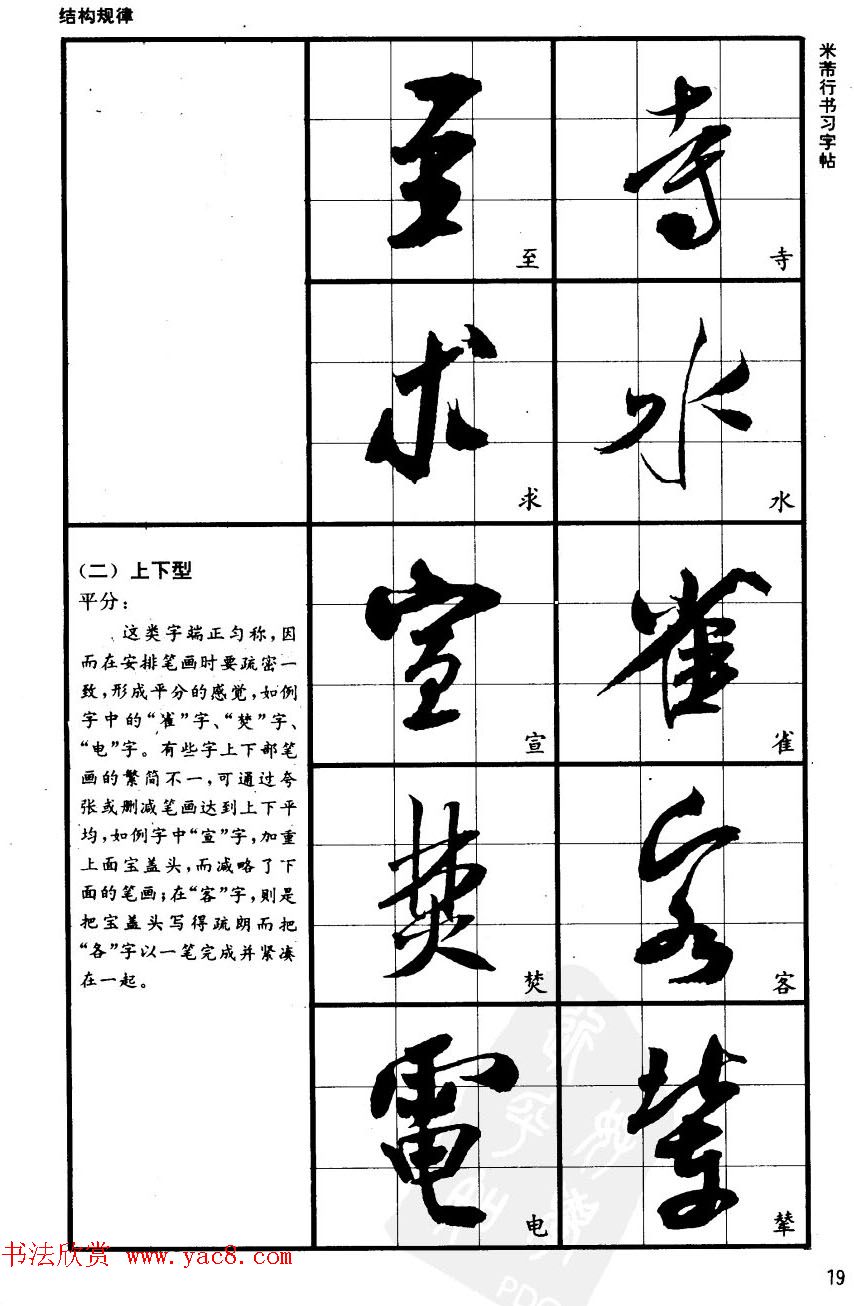 结构规律
米芾行书习字帖
寺
至
水
求
雀
宣
客
焚
辇
电
(二) 上下型
平分:
这类字端正匀称,因
而在安排笔画时要疏密一
致,形成平分的感觉,如例
字中的“雀”字、“焚”字、
“电”字。有些字上下部笔
画的繁简不一,可通过夸
张或删减笔画达到上下平
均,如例字中“宣”字,加重
上面宝盖头,而减略了下
面的笔画;在“客”字,则是
把宝盖头写得疏朗而把
“各”字以一笔完成并紧凑
在一起。
书法欣赏 www.yac8.com
19